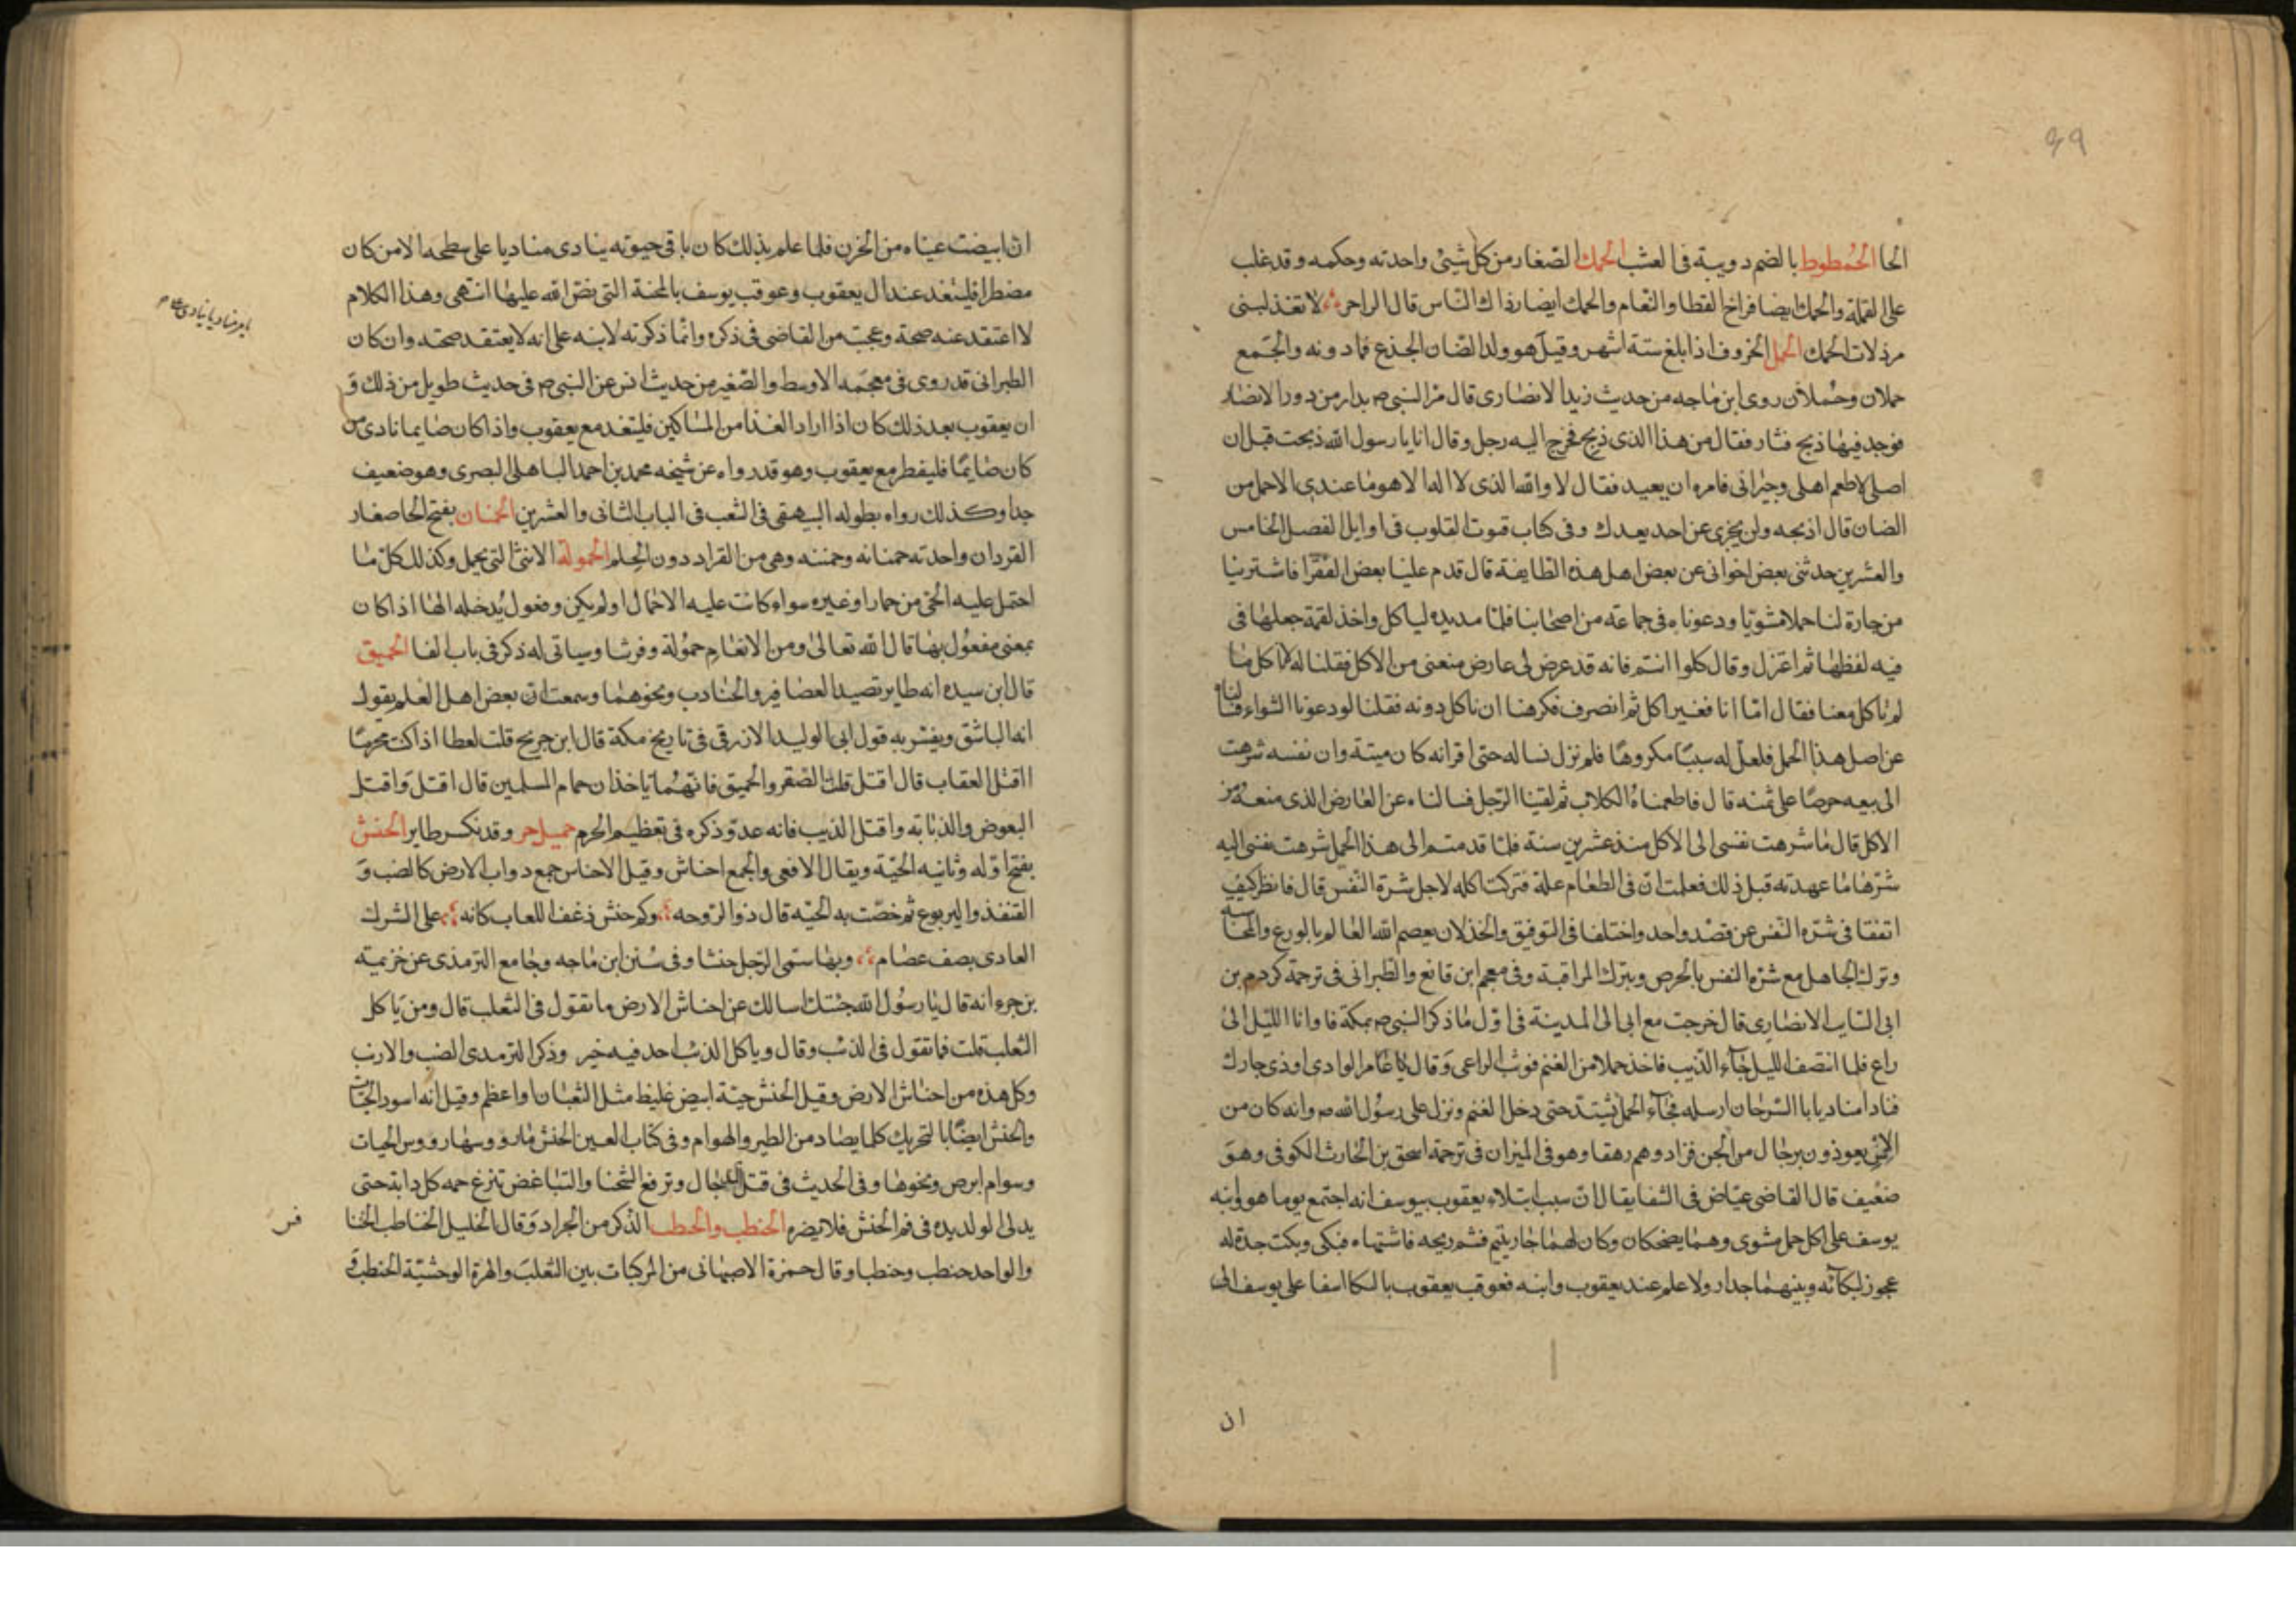 الحا الحُمطوط بالضم دويبة فى العشب الحمك الصغار من كل شيئ واحدته وحكمه وقد غلب
على القملة والحمك ايضا فراخ القطا والنعام والحمك ايضا رذال الناس قال الراجز لا تعذلينى
برذلات الحمك الحمل الخروف اذا بلغ ستة اشهر وقيل هو ولد الضان الجذع فما دونه والجمع
حملان وحُملان روى ابن ماجه من حديث زيد الانصارى قال مر النبى ص بدار من دور الانصار
فوجد فيها ذبح قتار فقال من هذا الذى ذبح فخرج اليه رجل وقال انا يا رسول الله ذبحت قبل ان
اصلى لاطعم اهلى وجيرانى فامره ان يعيد فقال لا والله الذى لا اله الا هو ما عندى الا حمل من
الضان قال اذبحه ولن يجزى عن احد بعدك وفى كتاب قوت القلوب فى اوايل الفصل الخامس
والعشرين حدثنى بعض اخوانى عن بعض اهل هذه الطايفة قال قدم علينا بعض الفقرا فاشترينا
من جارة لنا حملا مشويا ودعوناه فى جماعة من اصحابنا فلما مد يده لياكل واخذ لقمة جعلها فى
فيه لفظها ثم اعتزل وقال كلوا انتم فانه قد عرض لى عارض منعنى من الاكل فقلنا له لا ناكل ما
لم تاكل معنا فقال اما انا فغير اكل ثم انصرف فكرهنا ان ناكل دونه فقلنا لو دعونا الشواء فسالناه
عن اصل هذا الحمل فلعل له سببا مكروها فلم نزل نساله حتى اقر انه كان ميتة وان نفسه شرهت
الى بيعه حرصا على ثمنه قال فاطعمناه الكلاب ثم لقينا الرجل فسالناه عن العارض الذى منعه من
الاكل قال ما شرهت نفسى الى الاكل منذ عشرين سنة فلما قدمتم الى هذا الحمل شرهت نفسى اليه
شرها ما عهدته قبل ذلك فعلمت ان فى الطعام علة فتركت اكله لاجل شرة النفس قال فانظر كيف
اتفقا فى شره النفس عن قصد واحد واختلفا فى التوفيق والخذلان يعصم الله العالم بالورع والمحاسبه
وترك الجاهل مع شره النفس بالحرص وبترك المراقبة وفى معجم ابن قانع والطبرانى فى ترجمة كردم بن
ابى السايب الانصارى قال خرجت مع ابى الى المدينة فى اول ما ذكر النبى ص بمكة فاوانا الليل الى
راع فلما انتصف الليل جاء الذيب فاخذ حملا من الغنم فوثب الراعى وقال يا عامر الوادى اوذى جارك
فنادا مناد يا با السرحان ارسله فجاء الحمل يشتد حتى دخل الغنم ونزل على رسول الله ص وانه كان من
الانس يعوذون برجال من الجن فزادوهم رهقا وهو فى الميزان فى ترجمة اسحق بن الحارث الكوفى وهو
ضعيف قال القاضى عياض فى الشفا يقال ان سبب ابتلاء يعقوب بيوسف انه اجتمع يوما هو وابنه
يوسف على اكل حمل مشوى وهما يضحكان وكان لهما جار يتيم فشم ريحه فاشتهاه فبكى وبكت جدة له
عجوز لبكائه وبينهما جدار ولا علم عند يعقوب وابنه فعوقب يعقوب بالبكا اسفا على يوسف الى
ان
ان ابيضت عيناه من الحزن فلما علم بذلك كان باقى حيوته ينادى مناديا على سطحه الا من كان
مضطرا فليتغد عند ال يعقوب وعوقب يوسف بالمحنة التى نص الله عليها انتهى وهذا الكلام
لا اعتقد عنه صحة وعجبت من القاضى فى ذكره وانما ذكرته لابنه على انه لا يعتقد صحته وان كان
الطبرانى قد روى فى معجمه الاوسط والصغير من حديث انس عن النبى ص فى حديث طويل من ذلك و
ان يعقوب بعد ذلك كان اذا اراد الغذا من المساكين فليتغد مع يعقوب واذا كان صايما نادى من
كان صايما فليفطر مع يعقوب وهو قد رواه عن شيخه محمد بن احمد الباهلى البصرى وهو ضعيف
جدا وكذلك رواه بطوله البيهقى فى الشعب فى الباب الثانى والعشرين الحمنان بفتح الحا صغار
القردان واحدته حمنانه وحمنه وهى من القراد دون الحلم الحمولة الانثى التى تحمل وكذلك كل ما
احتمل عليه الحى من حمار او غيره سواء كانت عليه الاحمال او لم يكن وفعول يُدخله الها اذا كان
بمعنى مفعول بها قال الله تعالى ومن الانعام حمولة وفرشا وسياتى له ذكر فى باب الفا الحميق
قال ابن سيده انه طاير تصيد العصافير والجنادب ونحوهما وسمعت ان بعض اهل العلم يقول
انه الباشق ويفسر به قول ابى الوليد الازرقى فى تاريخ مكة قال ابن جريح قلت لعطا اذا كنت محرما
ااقتل العقاب قال اقتل قلت الصقر والحميق فانهما ياخذان حمام المسلمين قال اقتل واقتل
البعوض والذبابه واقتل الذيب فانه عدو وذكره فى تعظيم الحرم حميل حر وقد تكسر طاير الحنش
بفتح اوله وثانيه الحية ويقال الافعى والجمع احناش وقيل الاحناس جمع دواب الارض كالضب و
القنفذ واليربوع ثم خصت به الحية قال ذو الرمة وكم حنش ذعف اللعاب كانه على الشرك
العادى نصف عصام وبها سمى الرجل حنشا وفى سنن ابن ماجه وجامع الترمذى عن خزيمة
بن جزء انه قال يا رسول الله جئتك اسالك عن احناش الارض ما تقول فى الثعلب قال ومن ياكل
الثعلب قلت فما تقول فى الذئب وقال وياكل الذئب احد فيه خير وذكر الترمدى الضب والارنب
وكل هذه من احناش الارض وقيل الحنش حية ابيض غليظ مثل الثعبان او اعظم وقيل انه اسود الحيات
والحنش ايضا بالتحريك كلما يصاد من الطير والهوام وفى كتاب العين الحنش ما رووسها رووس الحيات
وسوام ابرص ونحوها وفى الحديث فى قتل الدجال وترفع الشحنا والتباغض تنزع حمه كل دابة حتى
يدلى الولد يده فى فم الحنش فلا يضره الحنظب والحنطب الذكر من الجراد وقال الخليل الحناظب الخنا
والواحد حنطب وحنطبا وقال حمزة الاصبهانى من المركبات بين الثعلب والهرة الوحشية الحنطب و
فس